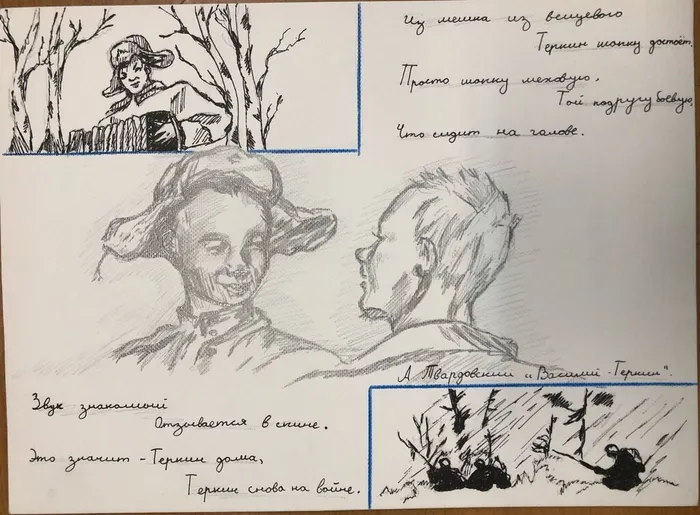 Из мешка из вещевого
Теркин шапку достаёт.
Просто шапку меховую,
Той подругу боевую,
Что сидит на голове.
А. Твардовский „Василий Теркин".
Звук знакомый
Отзывается в спине.
Это значит - Теркин дома,
Теркин снова на войне.